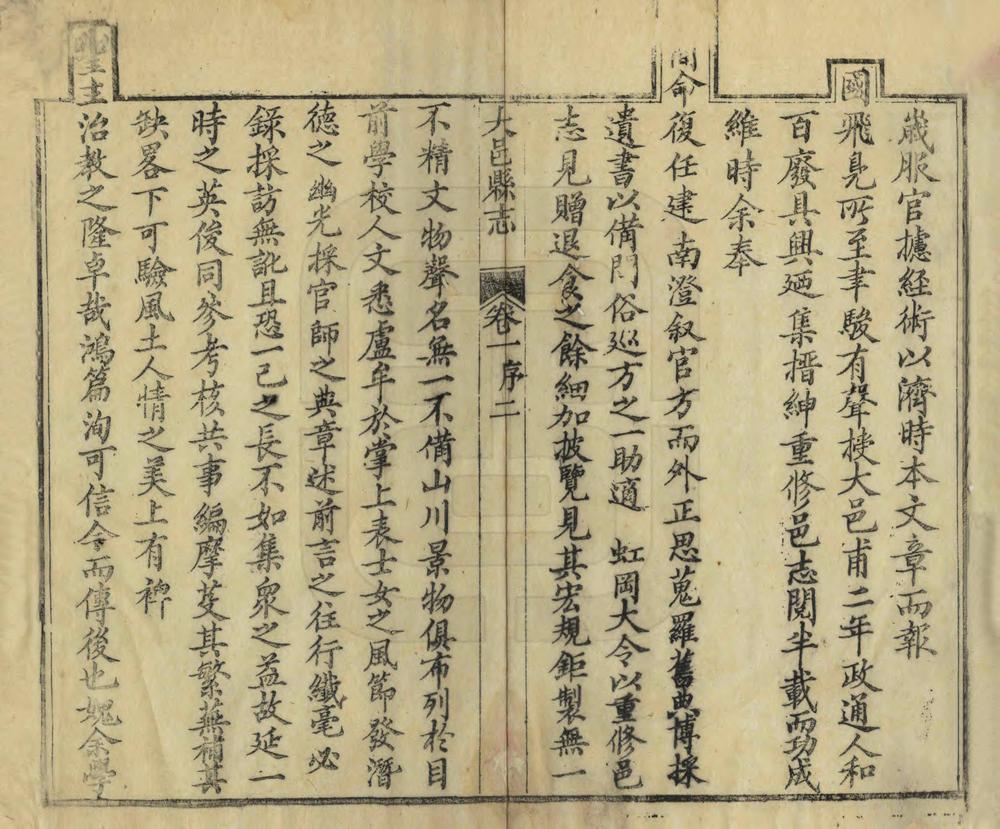 歲服官據經術以濟時本文章而報
國飛鳧所至聿駿有聲挾大邑甫二年政通人和
百廢具興廼集搢紳重修邑志閱半載而功成
維時余奉
簡命復任建南澄叙官方而外正思蒐羅舊典博採
遺書以備問俗巡方之一助適　虹岡大令以重修邑
志見贈退食之餘細加披覽見其宏規鉅製無一
大邑縣志　卷一序　二
不精文物聲名無一不備山川景物俱布列於目
前學校人文悉盧牟於掌上表士女之風節發潛
德之幽光採官師之典章述前言之往行纖毫必
錄採訪無訛且恐一己之長不如集眾之益故延一
時之英俊同參考核共事編摩芟其繁蕪補其
缺畧下可驗風土人情之美上有裨
聖主治教之隆卓哉鴻篇洵可信今而傳後也媿余學